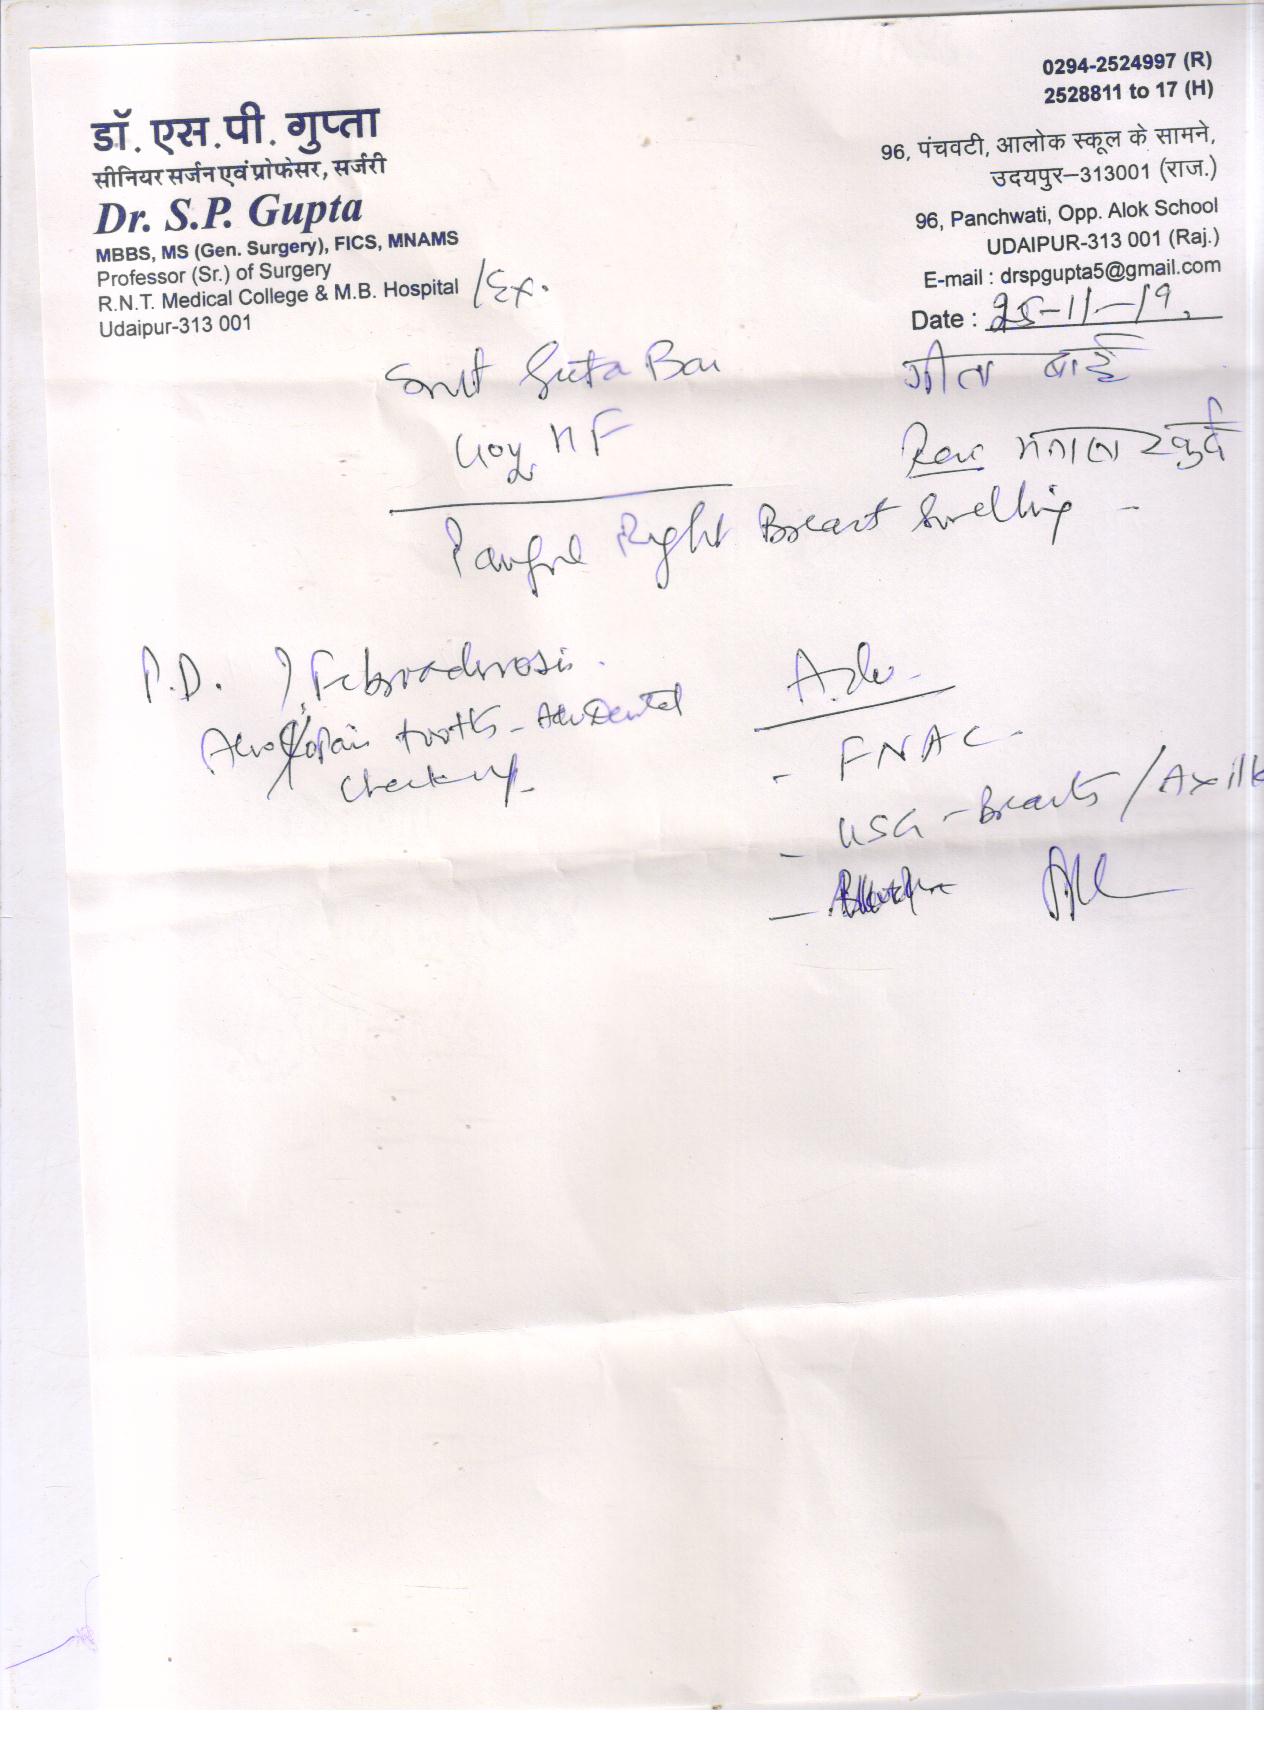 0294-2524997 (R)
2528811 to 17 (H)
डॉ. एस.पी. गुप्ता
सीनियर सर्जन एवं प्रोफेसर, सर्जरी
Dr. S.P. Gupta
MBBS, MS (Gen. Surgery), FICS, MNAMS
Professor (Sr.) of Surgery
R.N.T. Medical College & M.B. Hospital /Ex.
Udaipur-313 001
96, पंचवटी, आलोक स्कूल के सामने,
उदयपुर–313001 (राज.)
96, Panchwati, Opp. Alok School
UDAIPUR-313 001 (Raj.)
E-mail : drspgupta5@gmail.com
Date : 25-11-19
Smt Geeta Bai
गीता बाई
F
Painful Right Breast Swelling -
P.D. ? Fibroadenosis.
pain tooth - Adv Dental
Check up
Adv.
- FNAC
- USG - Breasts / Axilla